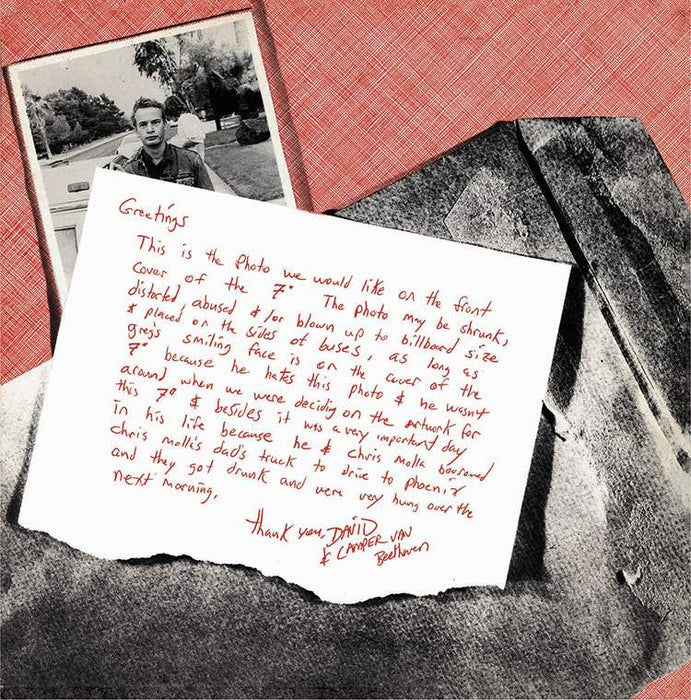 Greetings
This is the photo we would like on the front
cover of the 7". The photo may be shrunk,
distorted, abused &/or blown up to billboard size
& placed on the sides of buses, as long as
greg's smiling face is on the cover of the
7" because he hates this photo & he wasnt
around when we were deciding on the artwork for
this 7" & besides it was a very important day
in his life because he & Chris Molla borrowed
Chris Molla's dad's truck to drive to Phoenix
and they got drunk and were very hung over the
next morning.
thank you, DAVID
& CAMPER VAN
Beethoven